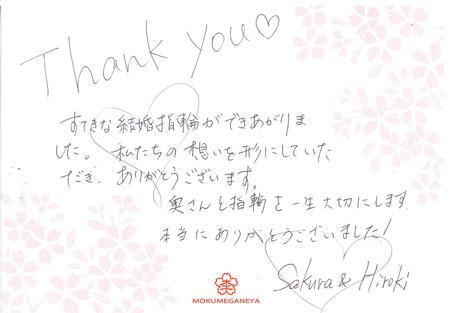 Thank you♡
すてきな結婚指輪ができあがりま
した。 私たちの想いを形にしていた
だき、ありがとうございます。
奥さんと指輪を一生大切にします
本当にありがとうございました!
Sakura & Hiroki
MOKUMEGANEYA